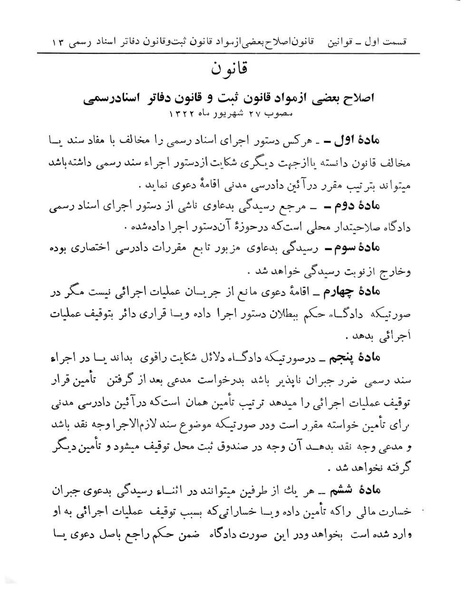 قسمت اول ــ قوانین    قانون اصلاح بعضی از مواد قانون ثبت و قانون دفاتر اسناد رسمی ۱۳
قانون
اصلاح بعضی از مواد قانون ثبت و قانون دفاتر اسناد رسمی
مصوب ۲۷ شهریور ماه ۱۳۲۲
مادۀ اول ــ هر کس دستور اجرای اسناد رسمی را مخالف با مفاد سند یا
مخالف قانون دانسته یا از جهت دیگری شکایت از دستور اجراء سند رسمی داشته باشد
میتواند بترتیب مقرر در آئین دادرسی مدنی اقامۀ دعوی نماید .
مادۀ دوم ــ مرجع رسیدگی بدعاوی ناشی از دستور اجرای اسناد رسمی
دادگاه صلاحیتدار محلی است که در حوزۀ آن دستور اجرا داده شده .
مادۀ سوم ــ رسیدگی بدعاوی مزبور تابع مقررات دادرسی اختصاری بوده
و خارج از نوبت رسیدگی خواهد شد .
مادۀ چهارم ــ اقامۀ دعوی مانع از جریان عملیات اجرائی نیست مگر در
صورتیکه دادگاه حکم ببطلان دستور اجرا داده و یا قراری دائر بتوقیف عملیات
اجرائی بدهد .
مادۀ پنجم ــ در صورتیکه دادگاه دلائل شکایت را قوی بداند یا در اجراء
سند رسمی ضرر جبران ناپذیر باشد بدرخواست مدعی بعد از گرفتن تأمین قرار
توقیف عملیات اجرائی را میدهد ترتیب تأمین همان است که در آئین دادرسی مدنی
برای تأمین خواسته مقرر است و در صورتیکه موضوع سند لازم‌الاجرا وجه نقد باشد
و مدعی وجه نقد بدهد آن وجه در صندوق ثبت محل توقیف میشود و تأمین دیگر
گرفته نخواهد شد .
مادۀ ششم ــ هر یك از طرفین میتوانند در اثناء رسیدگی بدعوی جبران
خسارت مالی را که تأمین داده و یا خساراتی که بسبب توقیف عملیات اجرائی به او
وارد شده است بخواهد و در این صورت دادگاه ضمن حکم راجع باصل دعوی یا